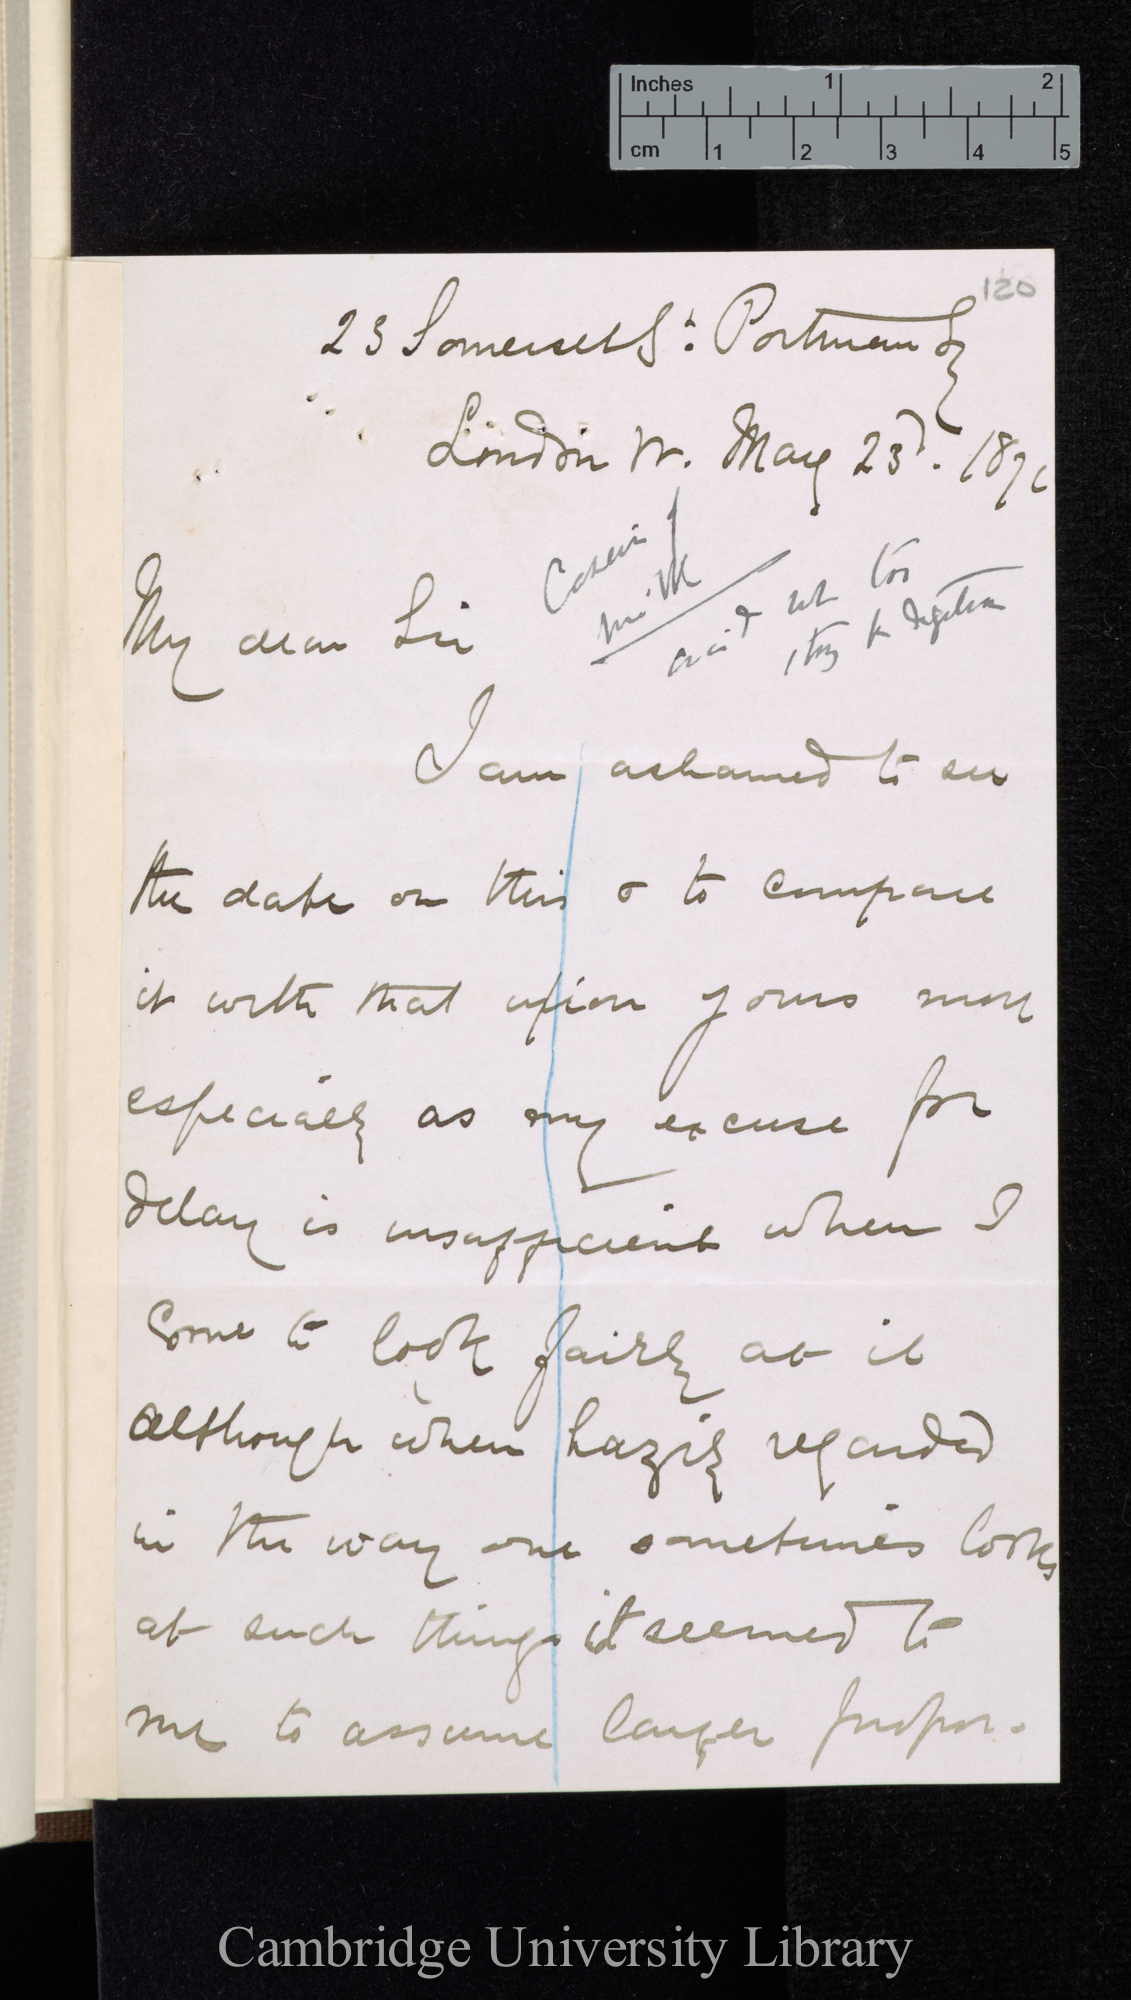 Inches 1 2
cm 1 2 3 4 5
120
23 Somerset St. Portman Sq
London W. May 23d. 187
Casein of
milk
acid not too
strong for digestion
My dear Sir
I am ashamed to see
the date on this & to compare
it with that upon yours more
especially as my excuse for
delay is insufficient when I
come to look fairly at it
although when hazily regarded
in the way one sometimes looks
at such things it seemed to
me to assume larger propor-
Cambridge University Library